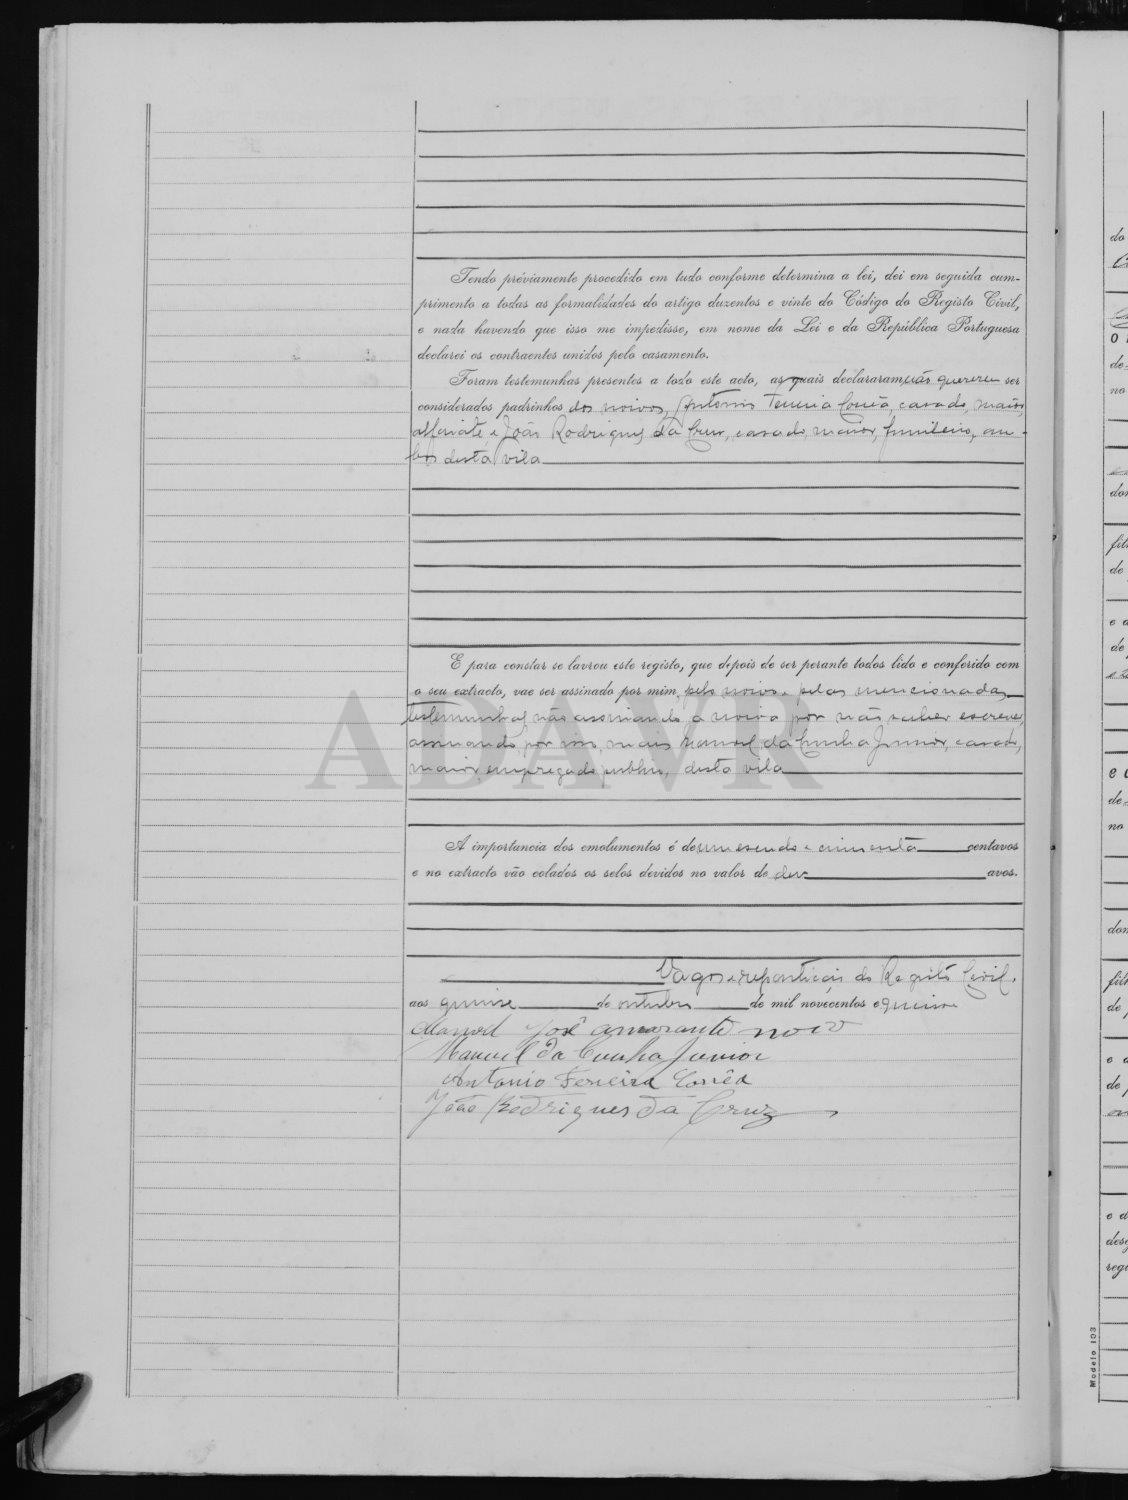 Tendo préviamente procedido em tudo conforme determina a lei, dei em seguida cum-
primento a todas as formalidades do artigo duzentos e vinte do Código do Registo Civil,
e nada havendo que isso me impedisse, em nome da Lei e da República Portuguesa
declarei os contraentes unidos pelo casamento.
Foram testemunhas presentes a todo este acto, as quais declararam não quererem ser
considerados padrinhos dos noivos, Antonio Ferreira Corrêa, casado, maior,
alfaiate, e João Rodrigues da Cruz, casado, maior, funileiro, am-
bos desta vila
E para constar se lavrou este registo, que depois de ser perante todos lido e conferido com
o seu extracto, vae ser assinado por mim, pelo noivo e pelas mencionadas
testemunhas não assinando a noiva por não saber escrever,
assinando, por isso, mais Manuel da Cunha Junior, casado,
maior, empregado publico, desta vila
ADAVR
A importancia dos emolumentos é de um escudo e cincoenta centavos
e no extracto vão colados os selos devidos no valor de dez avos.
Vagos e repartição do Registo Civil.
aos quinze de outubro de mil novecentos e quinze
Manoel José amarante noivo
Manuel da Cunha Junior
Antonio Ferreira Corrêa
João Rodrigues da Cruz
do
O
de
no
dos
fil
de
e a
de
e
de
no
dom
filh
de
e a
de
e d
desg
regi
Modelo 103